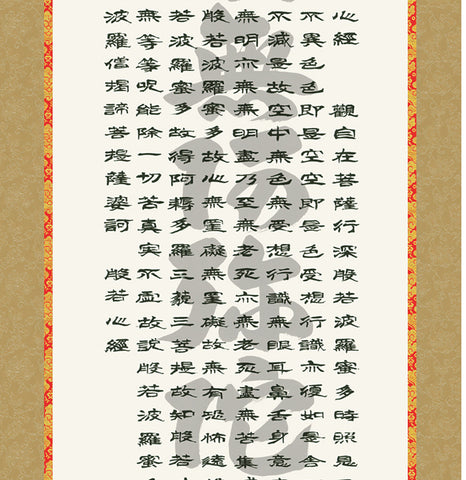 心經 觀自在菩薩行深般若波羅蜜多時照見
不異色色即是空空即是色受想行識亦復如是舍
不滅是故空中無色無受想行識無眼耳鼻舌身意
無明亦無無明盡乃至無老死亦無老死盡無苦集
般若波羅蜜多故心無罣礙無罣礙故無有恐怖遠
若波羅蜜多故得阿耨多羅三藐三菩提故知般若
無等等呪能除一切苦真實不虛故說般若波羅蜜
波羅僧揭諦菩提薩婆訶 般若心經
無阿彌陀